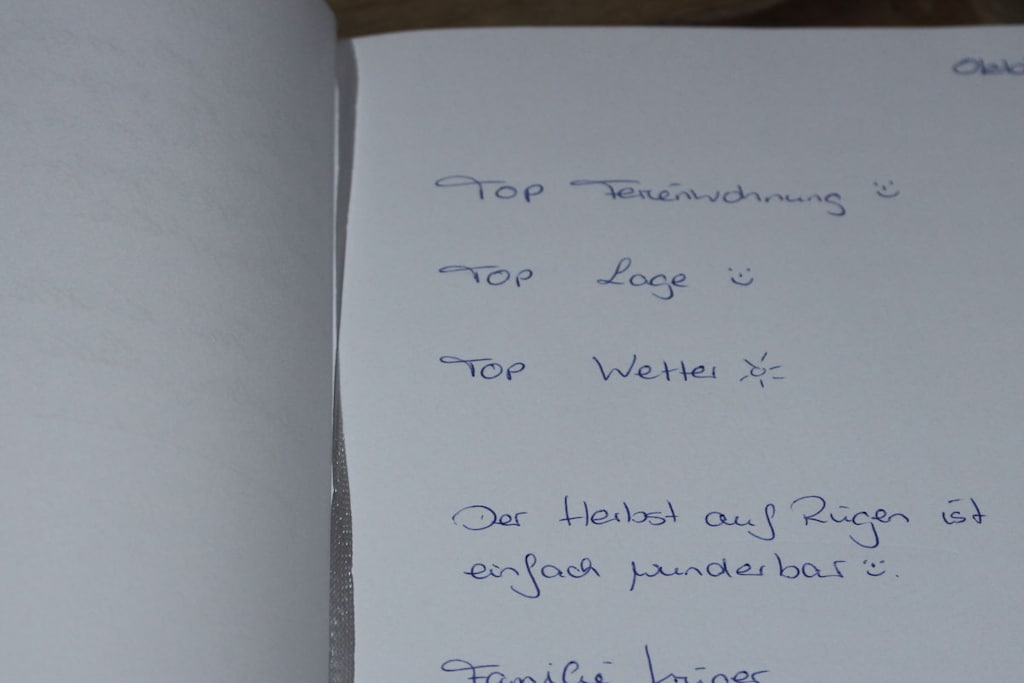 TOP Ferienwohnung
TOP Lage
TOP Wetter
Der Herbst auf Rügen ist
einfach wunderbar.
Familie